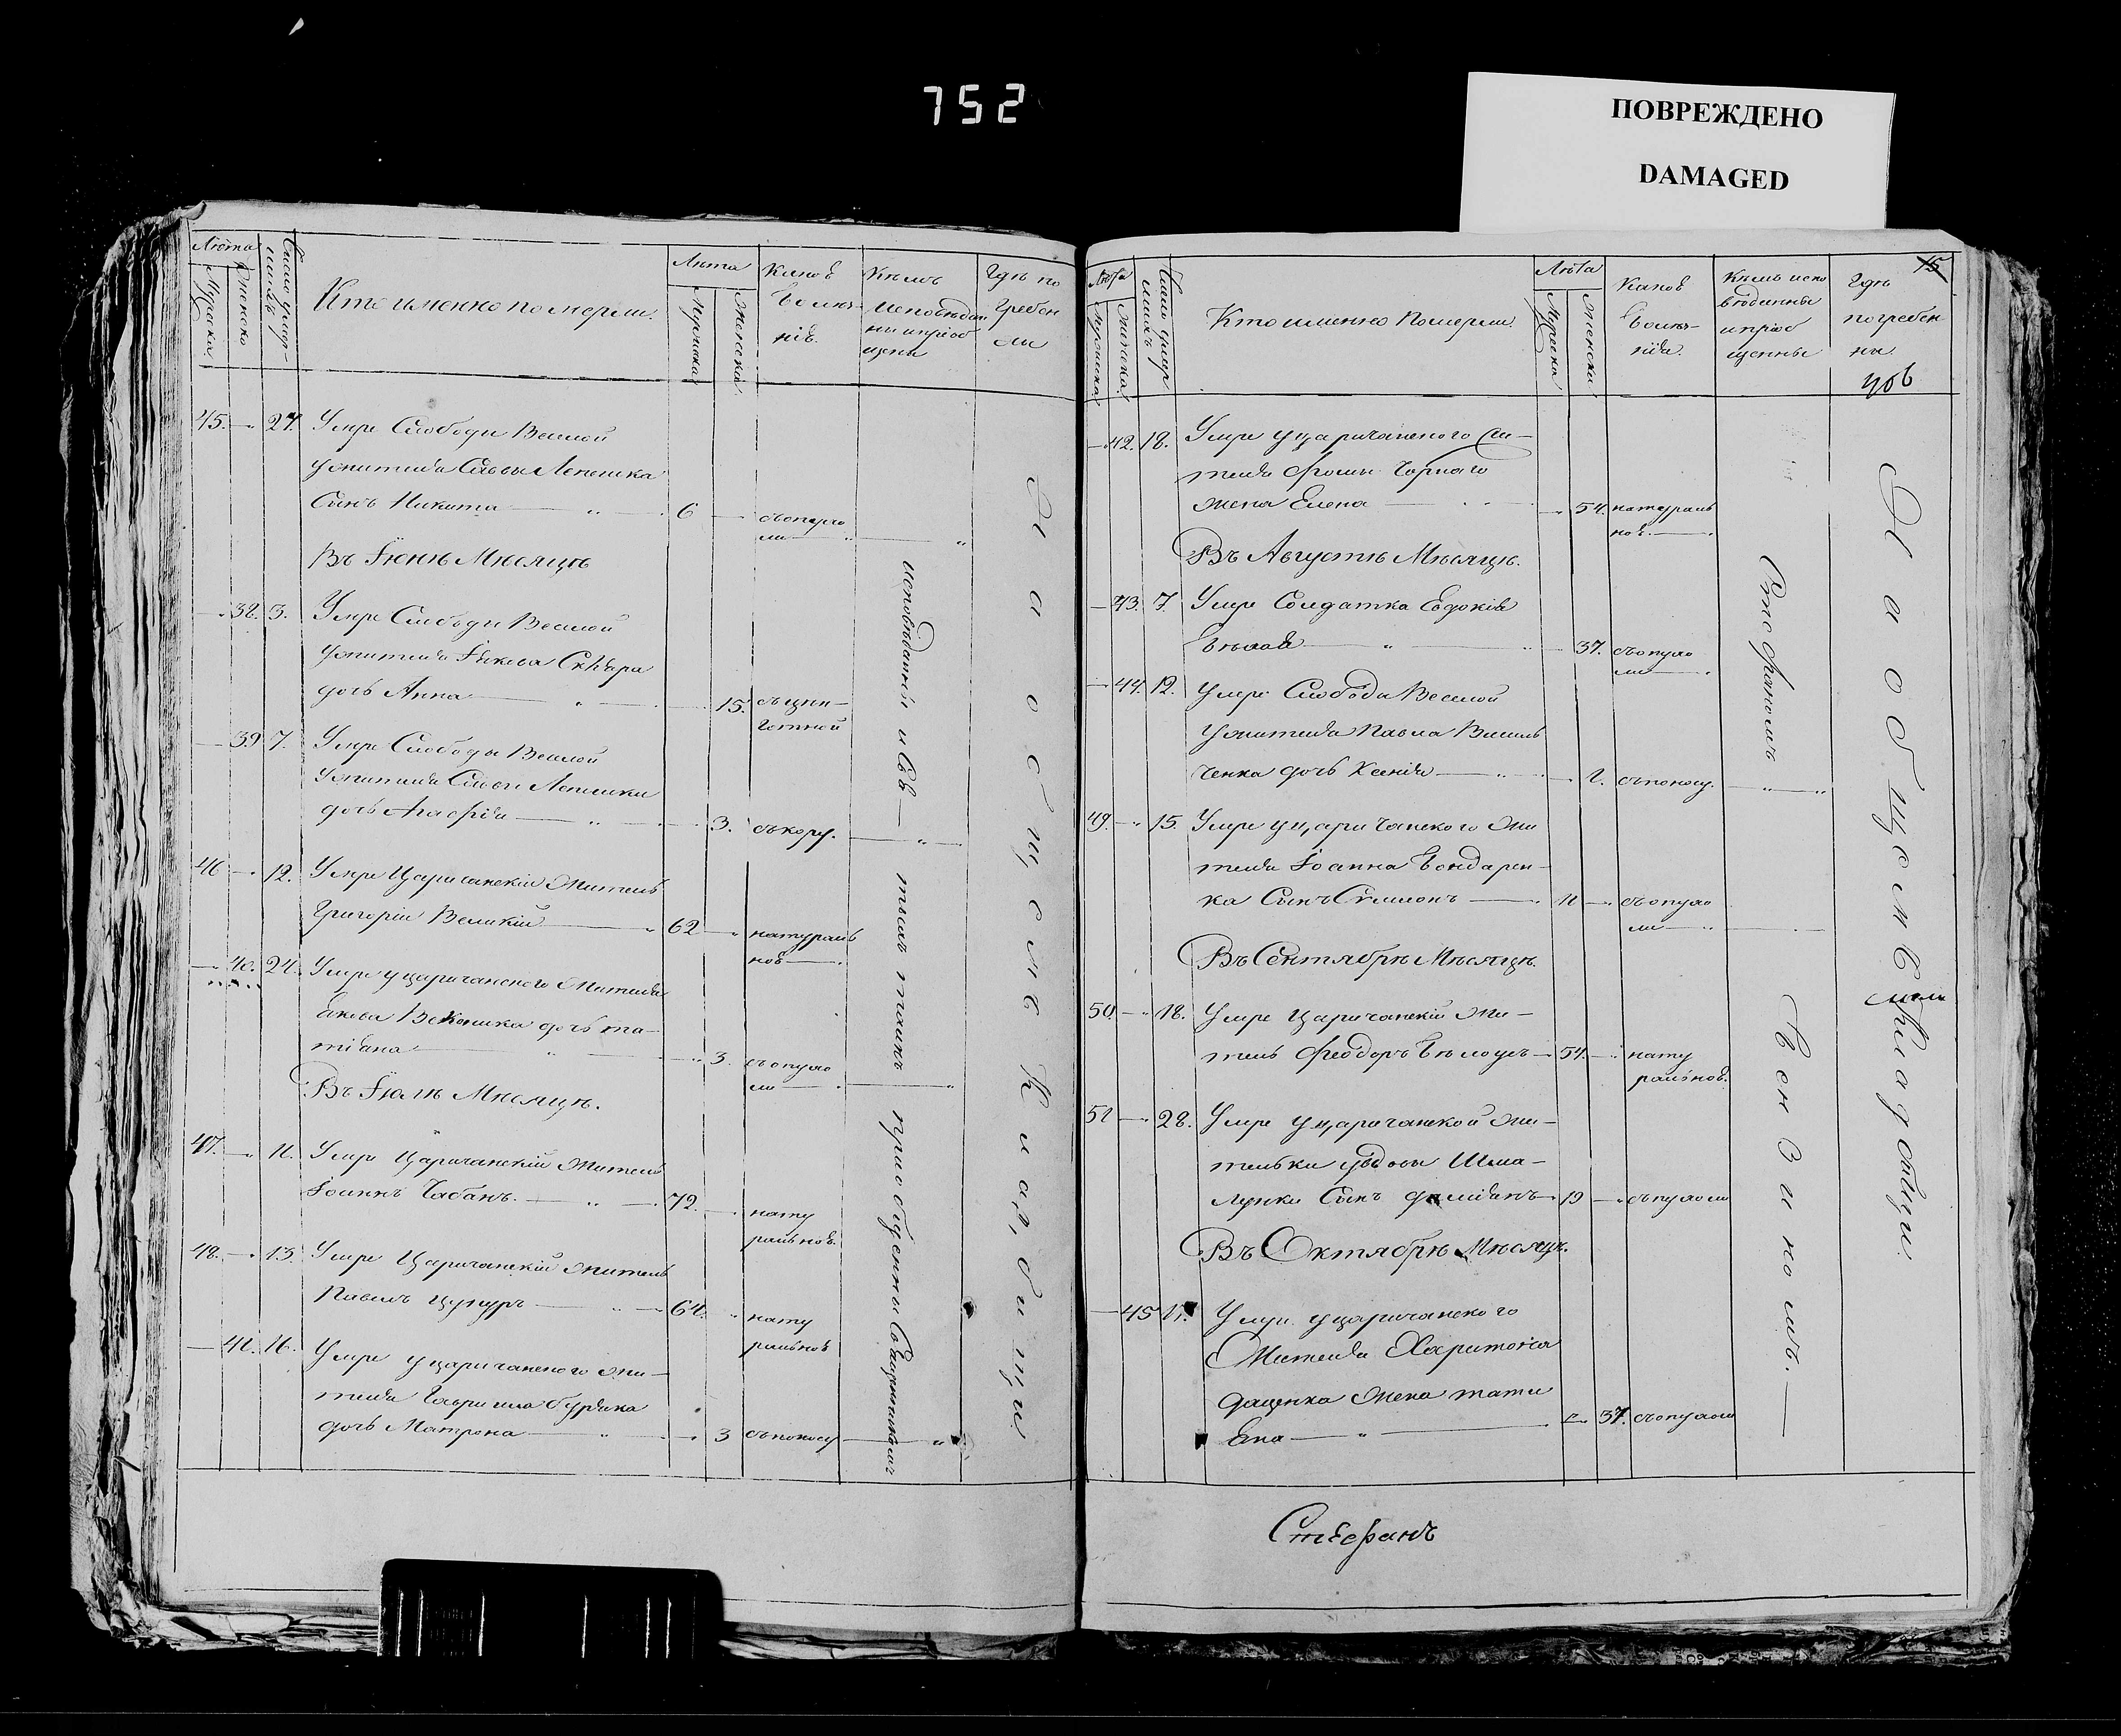 752
ПОВРЕЖДЕНО
DAMAGED
Лѣта
Мужеска
Женска
Число умер-
шихъ
Кто именно померли.
Лѣта
Мужеска
Женска
Каков
болѣз-
нію.
Кѣмъ
исповѣдан
ни и пріоб
щены
Гдѣ по
гребен
ни
45. 27. Умре Слободы Веселой
у жителя Саввы Лепешка
Сынъ Никита 6
Въ Іюнѣ Мѣсяцѣ
38. 3. Умре Слободы Веселой
у жителя Якова
дочь Анна 15.
39 7. Умре Слободы Веселой
у жителя Саввы Лепешки
дочь Агафія 3. съ кору.
46 12. Умре Царичанскій Житель
Григорій Великій 62 натураль
ной
40. 24. Умре у царичанского Жителя
Якова дочь та-
тіана 3. съ опухо
ли
Въ Іюлѣ Мѣсяцѣ.
47. 11. Умре Царичанскій Житель
Іоаннъ Чабанъ. 72. нату
ральной.
48. 13. Умре Царичанскій Житель
Павелъ Цупуръ 61. нату
ральной
41. 16. Умре у царичанского жи-
теля Гавриила Буряка
дочь Матрона 3 съ поносу
исповѣданны и Св. таинъ пріобщенны Священникомъ
На общемъ Кладбищи
15
Лѣта
Мужеска
Женска.
Число умер
шихъ
Кто именно Померли.
Лѣта
Мужеска
Женска
Каков
болѣз-
нію.
Кѣмъ испо
вѣданны
и пріоб
щенны
Гдѣ
погребен
ны.
706
42. 18. Умре у царичанского жи-
теля Фомы Чорнаго
жена Елена 54. натураль
ной.
Въ Августѣ Мѣсяцѣ.
43. 7. Умре Солдатка Евдокія
Бѣлая 37. съ опухо
ли
44. 12. Умре Слобода Веселой
у жителя Павла Василь
ченка дочь Ксенія 1. съ поносу.
49. 15. Умре у царичанского жи
теля Іоанна Бондарен-
ка Сынъ Сѵмеонъ 11 съ опухо
ли
Въ Сентябрѣ Мѣсяцѣ.
50. 18. Умре Царичанскій жи-
тель Феодоръ 54. нату
ральной.
51 28. Умре у царичанской жи-
тельки удовы Шма-
лунки Сынъ даміанъ 19 съ пухоли
Въ Октябрѣ Мѣсяцѣ.
45 11. Умре у царичанского
Жителя Харитона
дащенка Жена тати
Ена 37. съ опухоли
Стефаномъ
Кладбищи.
Стефанъ